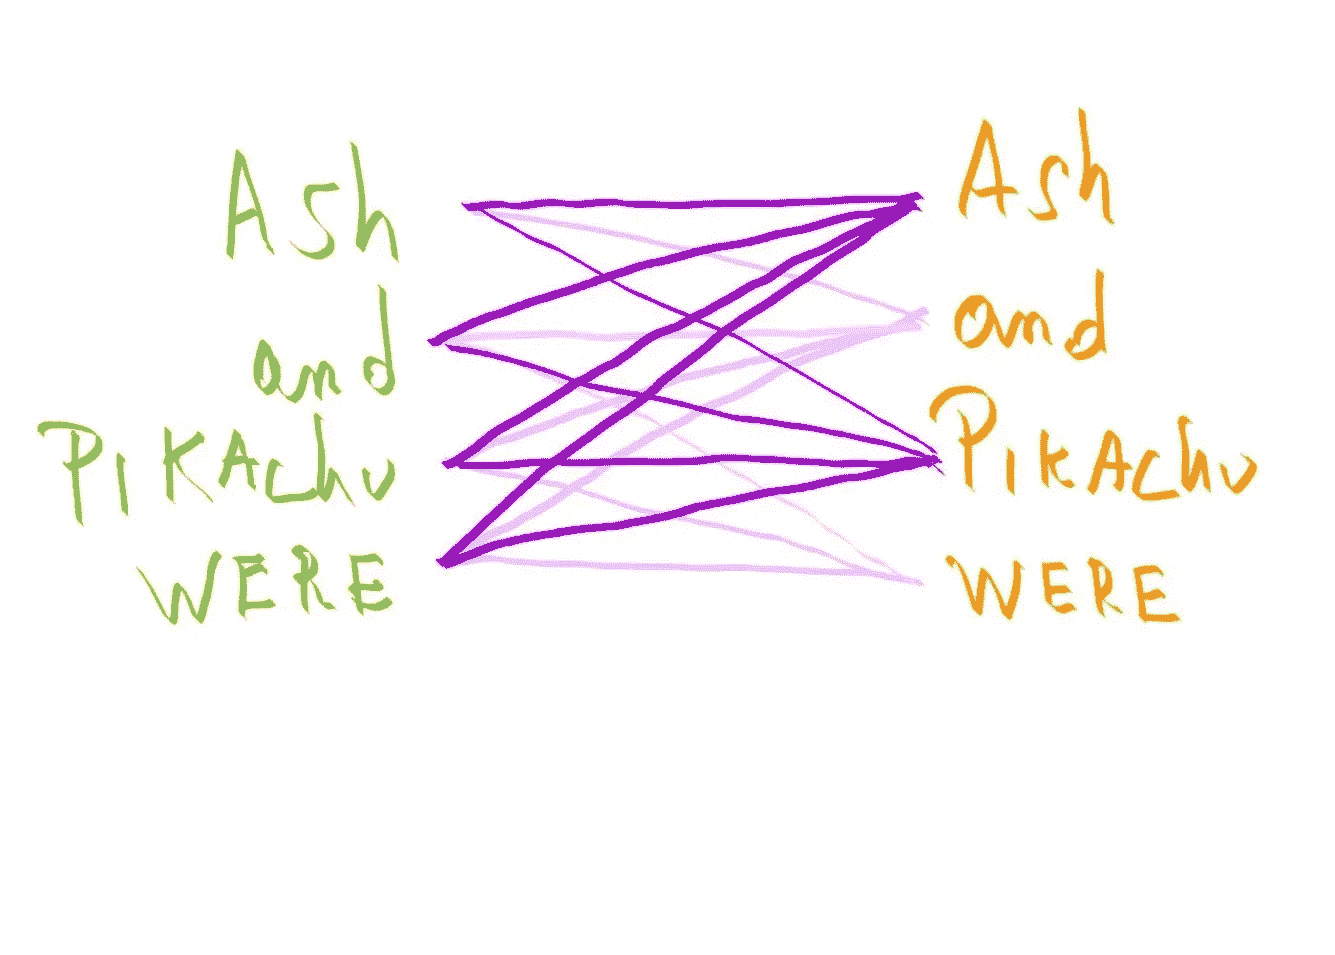 Ash
and
PIKAchu
WERE
Ash
and
PIKAchu
WERE